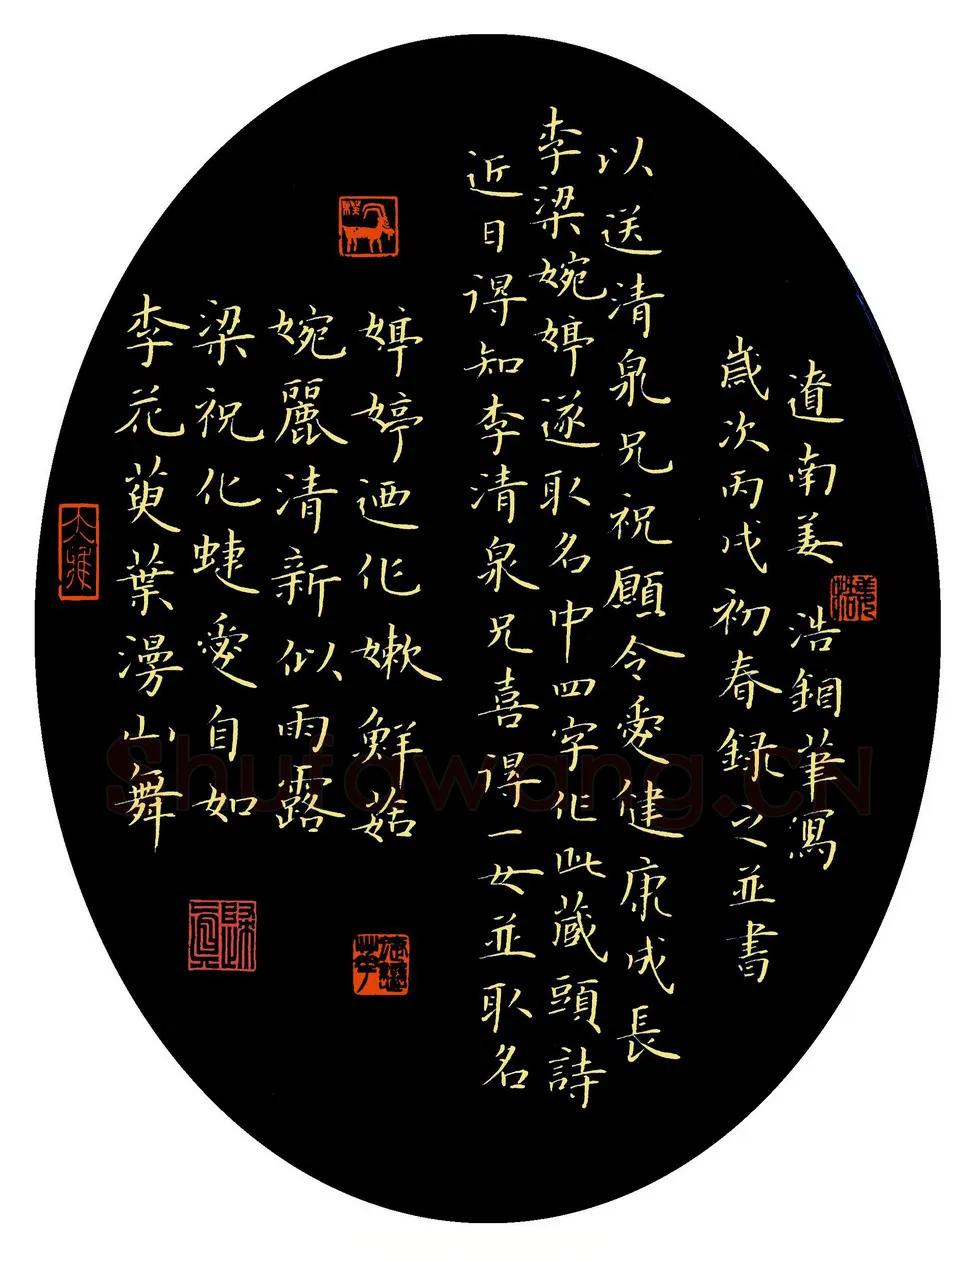 李花萸葉漫山舞
梁祝化蜨愛自如
婉麗清新似雨露
婷婷迺作嫩鮮菇
近日得知李清泉兄喜得一女並取名
李梁婉婷遂取名中四字作此藏頭詩
以送清泉兄祝願令愛健康成長
歲次丙戌初春録之並書
遼南姜 浩筆寫
大雅
Shufawang.CN